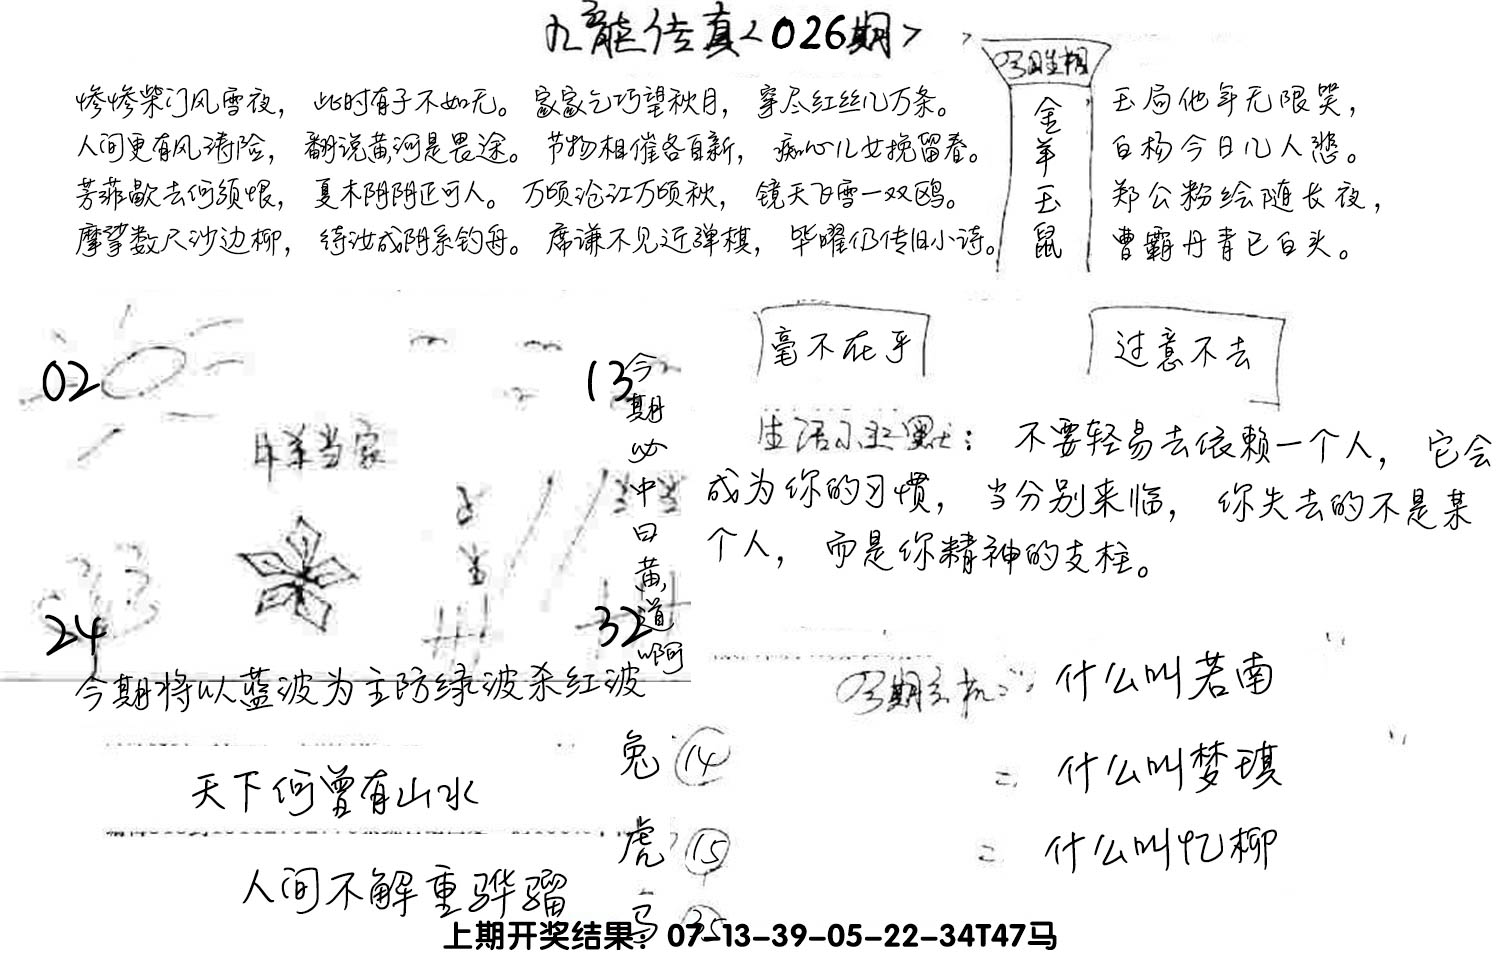 九龙传真<026期>
惨惨柴门风雪夜，此时有子不如无。家家乞巧望秋月，穿尽红丝几万条。
人间更有风涛险，翻说黄河是畏途。节物相催各自新，痴心儿女挽留春。
芳菲歇去何须恨，夏木阴阴正可人。万顷沧江万顷秋，镜天飞雪一双鸥。
摩挲数尺沙边柳，待汝成阴系钓舟。席谦不见近弹棋，毕曜仍传旧小诗。
今期生相
金羊玉鼠
玉局他年无限笑，
白杨今日几人悲。
郑公粉绘随长夜，
曹霸丹青已白头。
02
13
今期必中曰黄道啊
当家
24
32
今期将以蓝波为主防绿波杀红波
毫不在乎
过意不去
生活幽默：不要轻易去依赖一个人，它会
成为你的习惯，当分别来临，你失去的不是某
个人，而是你精神的支柱。
今期玄机：什么叫若南
什么叫梦琪
什么叫忆柳
天下何曾有山水
人间不解重骅骝
兔 14
虎 15
马 35
上期开奖结果：07-13-39-05-22-34T47马